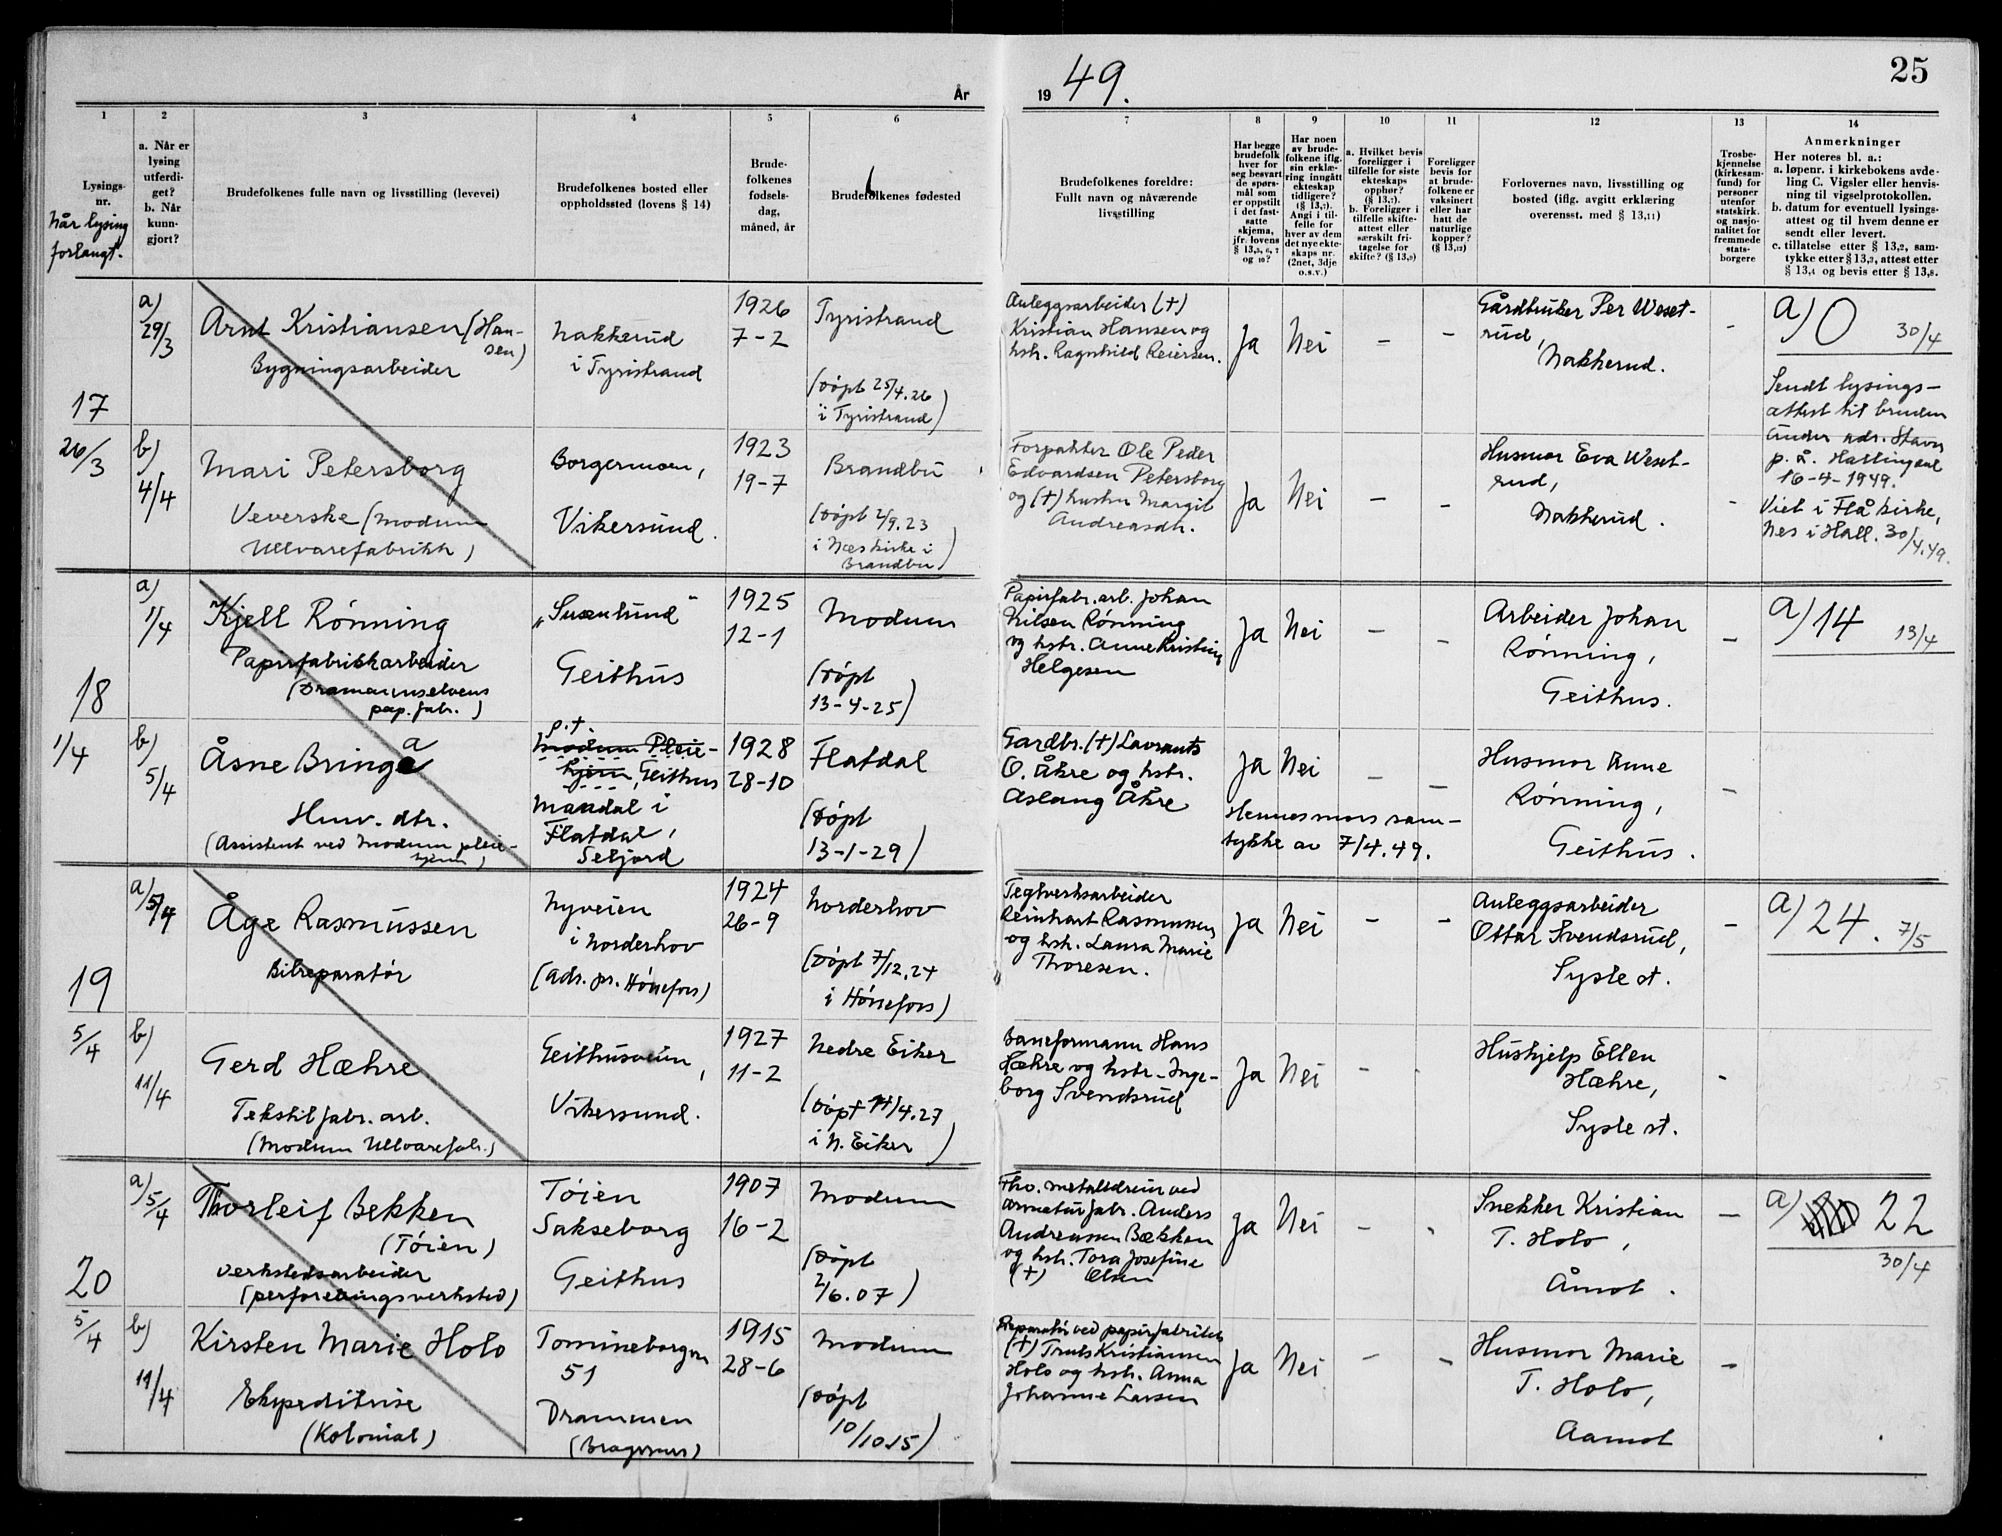 År
1949.
25
1
Lysings-
nr.
Når lysing
forlangt.
2
a. Når er
lysing
utferdi-
get?
b. Når
kunn-
gjort?
3
Brudefolkenes fulle navn og livsstilling (levevei)
4
Brudefolkenes bosted eller
oppholdssted (lovens § 14)
5
Brude-
folkenes
fødsels-
dag,
måned, år
6
Brudefolkenes fødested
7
Brudefolkenes foreldre:
Fullt navn og nåværende
livsstilling
8
Har begge
brudefolk
hver for
seg besvart
de spørs-
mål som
er oppstilt
i det fast-
satte
skjema,
jfr. lovens
§ 13,5, 6, 7
og 10?
9
Har noen
av brude-
folkene iflg.
sin erklæ-
ring inngått
ekteskap
tidligere?
(§ 13,7).
Angi i til-
felle for
hver av dem
det nye ekte-
skaps nr.
(2net, 3dje
o.s.v.)
10
a. Hvilket bevis
foreligger i
tilfelle for siste
ekteskaps
opphør?
(§ 13,7).
b. Foreligger i
tilfelle skifte-
attest eller
særskilt fri-
tagelse for
skifte? (§ 13,9)
11
Foreligger
bevis for
at brude-
folkene er
vaksinert
eller har
hatt de
naturlige
kopper?
(§ 13,12)
12
Forlovernes navn, livsstilling og
bosted (iflg. avgitt erklæring
overensst. med § 13,11)
13
Trosbe-
kjennelse
(kirkesam-
fund) for
personer
utenfor
statskirk.
og nasjo-
nalitet for
fremmede
stats-
borgere
14
Anmerkninger
Her noteres bl. a.:
a. løpenr. i kirkebokens avde-
ling C. Vigsler eller henvis-
ning til vigselprotokollen.
b. datum for eventuell lysings-
attest og til hvem denne er
sendt eller levert.
c. tillatelse etter § 13,2, sam-
tykke etter § 13,3, attest etter
§ 13,4 og bevis etter § 13,8.
17
26/3
a)
29/3
Arnt Kristiansen (Han-
sen)
Bygningsarbeider
Nakkerud
i Tyristrand
1926
7-2
Tyristrand
(døpt 25/4.26
i Tyristrand)
Anleggsarbeider (+)
Kristian Hansen og
hstr. Ragnhild Reiersen.
Ja
Nei
-
-
Gårdbruker Per Weset-
rud,
Nakkerud.
-
a) 0
30/4
Sendt lysings-
attest til bruden
under adr. Stavn
p.å. Hallingdal
16-4-1949.
Viet i Flå kirke,
Nes i Hall. 30/4.49.
b)
4/4
Mari Petersborg
Veverske (Modum
Ullvarefabrikk)
Borgermoen,
Vikersund.
1923
19-7
Brandbu
(døpt 2/9.23
i Næs kirke i
Brandbu)
Forpakter Ole Peder
Edvardsen Petersborg
og (+) hustru Margit
Andreasdtr.
Ja
Nei
-
-
Husmor Eva Weset-
rud,
Nakkerud.
-
18
1/4
a)
1/4
Kjell Rønning
Papirfabrikkarbeider
(Drammenselvens
pap.fabr.)
„Svenlund"
Geithus
1925
12-1
Modum
(døpt
13-4-25)
Papirfabr.arb. Johan
Nilsen Rønning
og hstr. Anne Kristine
Helgesen
Ja
Nei
-
-
Arbeider Johan
Rønning,
Geithus.
-
a) 14
13/4
b)
5/4
Åsne Bringa
Husv. dtr.
(Assistent ved Modum pleie-
hjem)
p.t.
Modum Pleie-
hjem, Geithus
Mandal i
Flatdal,
Seljord
1928
28-10
Flatdal
(døpt
13-1-29)
Gardbr. (+) Lavrants
O. Åkre og hstr.
Aslaug Åkre
Ja
Nei
-
-
Hennes mors sam-
tykke av 7/4.49.
Husmor Anne
Rønning,
Geithus.
-
19
5/4
a) 5/4
Åge Rasmussen
Bilreparatør
Nyveien
i Norderhov
(adr. pr. Hønefoss)
1924
26-9
Norderhov
(døpt 7/12.24
i Hønefoss)
Teglverksarbeider
Reinhart Rasmussen
og hstr. Laura Marie
Thoresen.
Ja
Nei
-
-
Anleggsarbeider
Ottar Svendsrud,
Sysle st.
-
a) 24. 7/5
b)
11/4
Gerd Hæhre
Tekstilfabr. arb.
(Modum Ullvarefabr.)
Geithusveien,
Vikersund.
1927
11-2
Nedre Eiker
(døpt 17/4.27
i N. Eiker)
Baneformann Hans
Hæhre og hstr. Inge-
borg Svendsrud
Ja
Nei
-
-
Hushjelp Ellen
Hæhre,
Sysle st.
-
20
5/4
a) 5/4
Thorleif Bekken
(Tøien)
Verkstedsarbeider
(perforeringsverksted)
Tøien
Sakseborg
Geithus
1907
16-2
Modum
(døpt
2/6.07)
Fhv. metalldreier ved
armaturfabr. Anders
Andreassen Bækken
og hstr. Tora Josefine
(+) Olsen
Ja
Nei
-
-
Snekker Kristian
T. Holo,
Åmot.
-
a) 22
30/4
b)
11/4
Kirsten Marie Holo
Ekspeditrise
(Kolonial)
Tomineborgen
51
Drammen
(Bragernes)
1915
28-6
Modum
(døpt
10/10.15)
Reparatør ved papirfabrikk
(+) Truls Kristiansen
Holo og hstr. Anna
Johanne Larsen
Ja
Nei
-
-
Husmor Marie
T. Holo,
Aamot
-